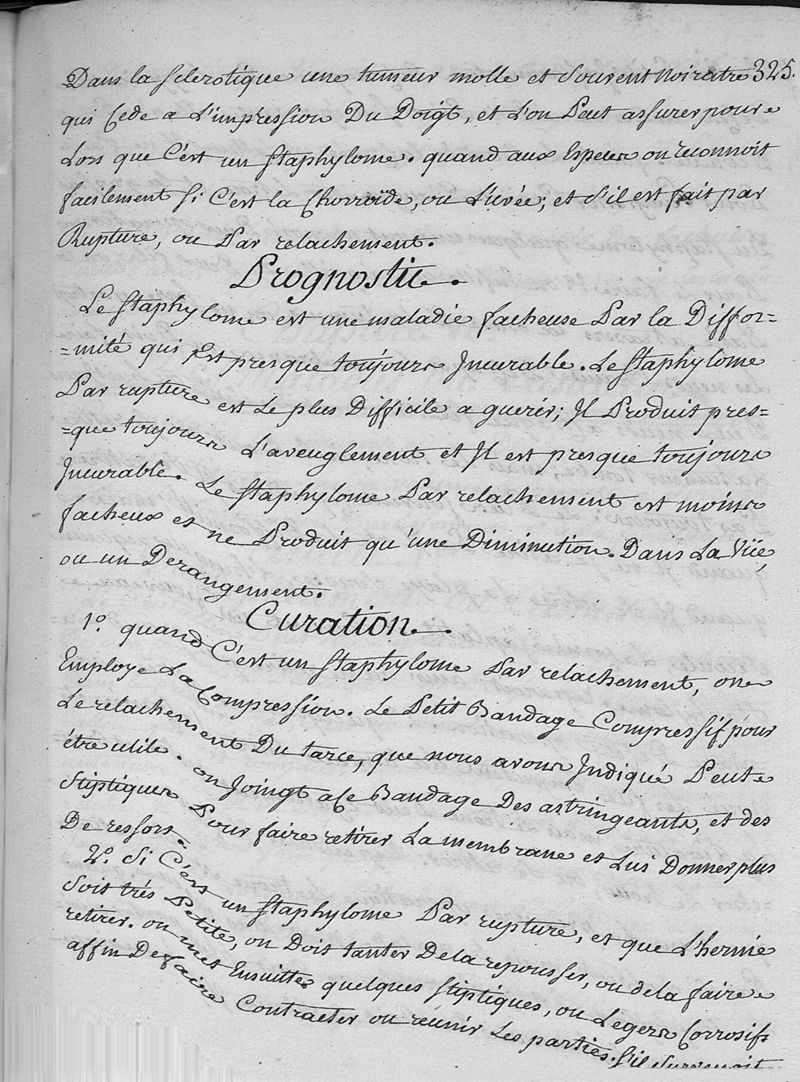 Dans la sclerotique une tumeur molle et souvent noiratre 325.
qui cede a L'impression Du Doigt, et L'on Peut assurer pour
Lors que C'est un staphylome. quand aux Especes on reconnoit
facilement si C'est la Chorroïde, ou L'uvée; et s'il est fait par
Rupture, ou Par relachement.
Prognostic.
Le staphylome est une maladie facheuse Par la Diffor=
=mité qui Est presque toujours Incurable. Le staphylome
Par rupture est Le plus Difficile a guerir; Il Produit pres=
=que toujours L'aveuglement et Il est presque toujours
Incurable. Le staphylome Par relachement est moins
facheux et ne Produit qu'une Diminution. Dans La Vüe,
ou un Derangement.
Curation.
1.o quand C'est un staphylome Par relachement, on
Employe La Compression. Le Petit Bandage Compressif pour
Le relachement Du tarce, que nous avons Indiqué Peut
être utile. on Joingt a Ce Bandage Des astringeants, et des
stiptiques Pour faire retirer La membrane et Lui Donner plus
De ressort.
2.o Si C'est un staphylome Par rupture, et que L'hernie
soit trés Petite, on Doit tanter De la repousser, ou de la faire
retirer. on met Ensuitte quelques stiptiques, ou Legers Corrosifs
affin De faire Contracter ou reunir Les parties. s'il survenoit